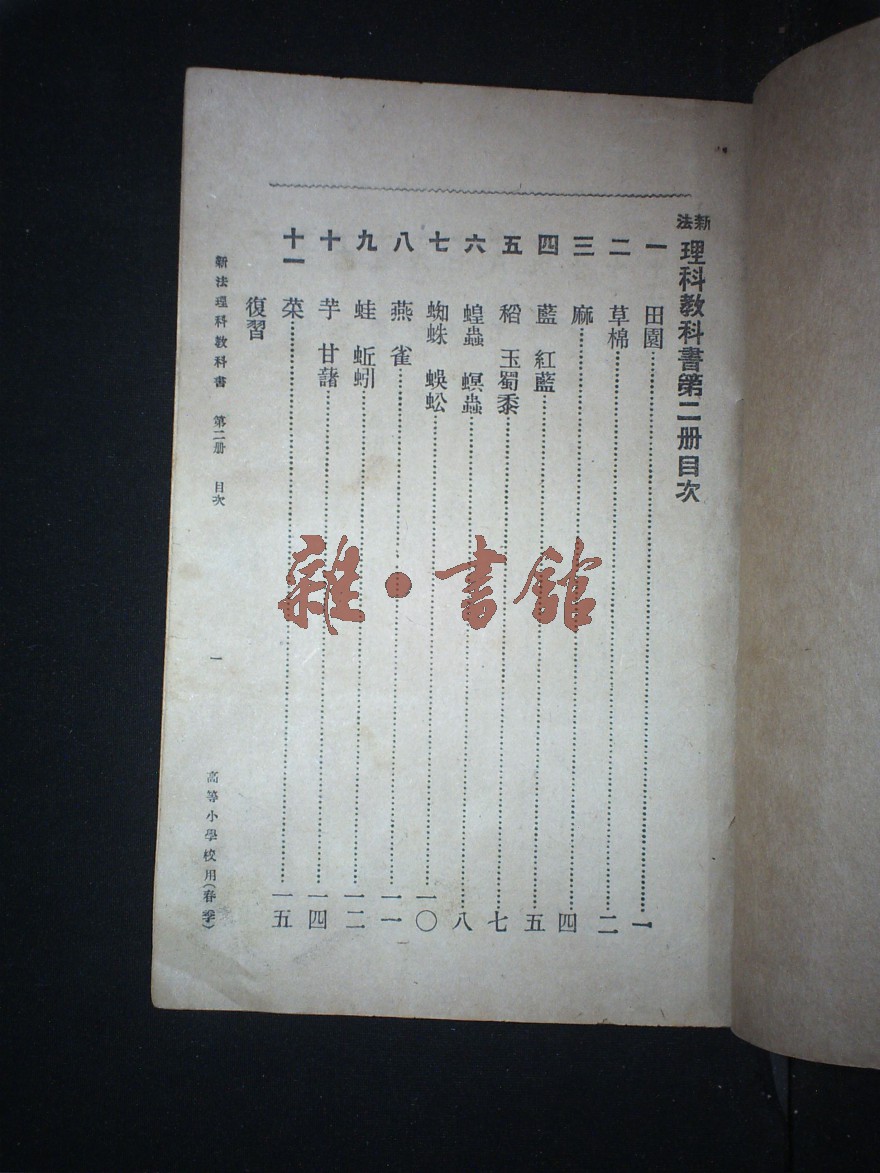 新法理科教科書第二册目次
一 田園 一
二 草棉 二
三 麻 四
四 藍 紅藍 五
五 稻 玉蜀黍 七
六 蝗蟲 螟蟲 八
七 蜘蛛 蜈蚣 一〇
八 燕 雀 一一
九 蛙 蚯蚓 一二
十 芋 甘藷 一四
十一 菜 一五
復習
新法理科教科書 第二册 目次 一 高等小學校用(春季)
雜·書館